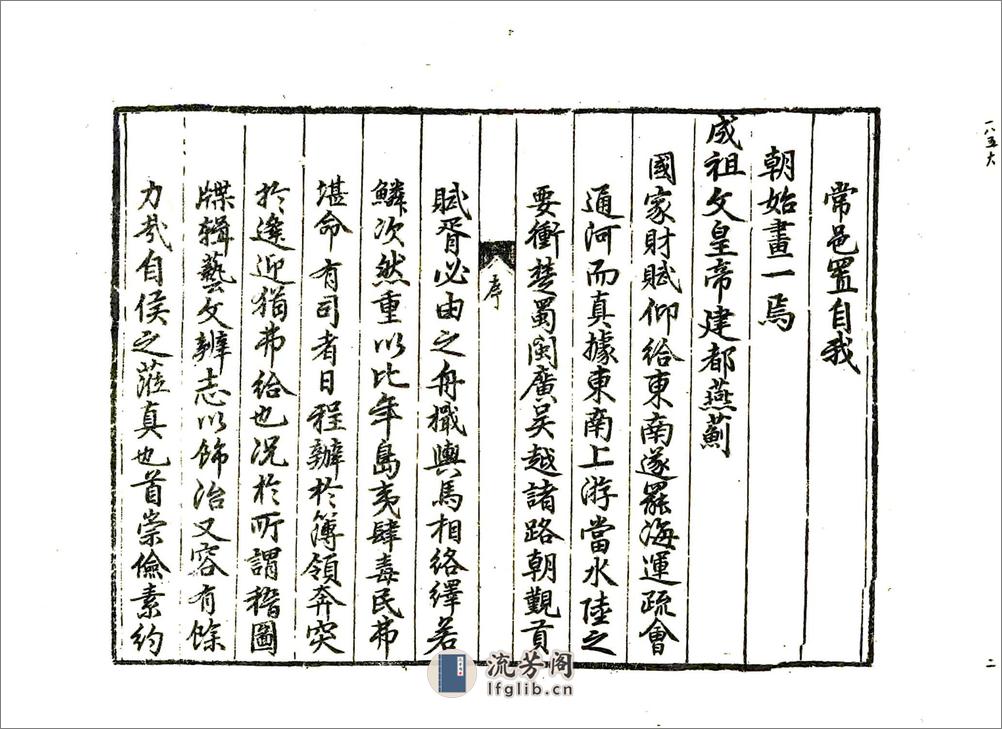 常邑置自我
朝始畫一焉
成祖文皇帝建都燕薊
國家財賦仰給東南遂罷海運疏會
通河而真據東南上游當水陸之
要衝楚蜀閩廣吳越諸路朝覲貢
序
賦胥必由之舟檝輿馬相絡繹若
鱗次然重以比年島夷肆毒民弗
堪命有司者日程辦於簿領奔突
於逢迎猶弗給也況於所謂稽圖
牒輯藝文辨志以飾治又容有餘
力哉自侯之蒞真也首崇儉素約
一八五六
二
流芳阁
lfglib.cn